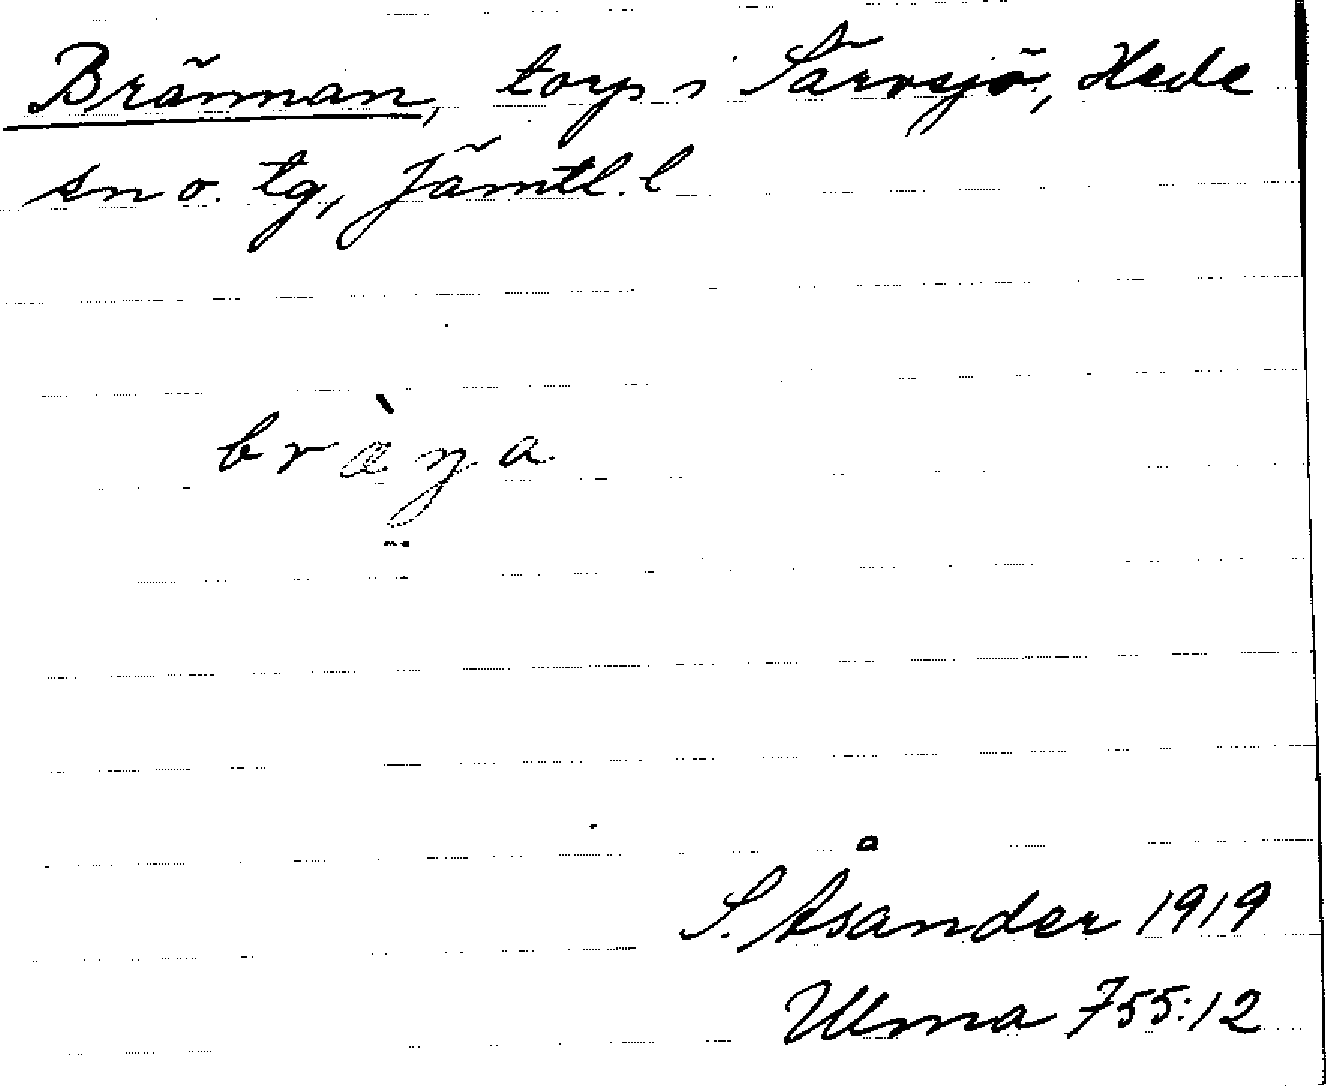 Brännan, torp i Särvsjö, Hede
sn o. tg, Jämtl. l
bræ̀n̥a
S. Åsander 1919
Ulma 755:12